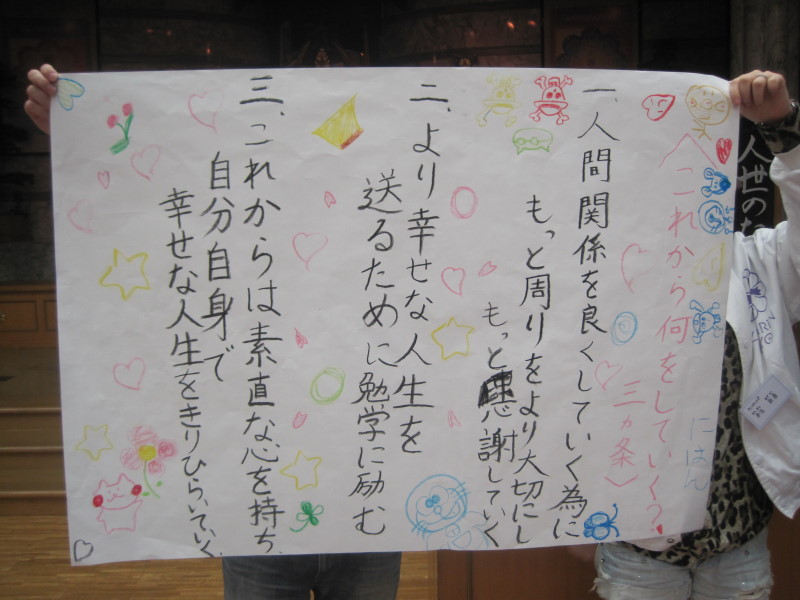 〈これから何をしていく？
三ヵ条〉
にはん
一、人間関係を良くしていく為に
もっと周りをより大切にし
もっと感謝していく
二、より幸せな人生を
送るために勉学に励む
三、これからは素直な心を持ち、
自分自身で
幸せな人生をきりひらいていく。
人世のな